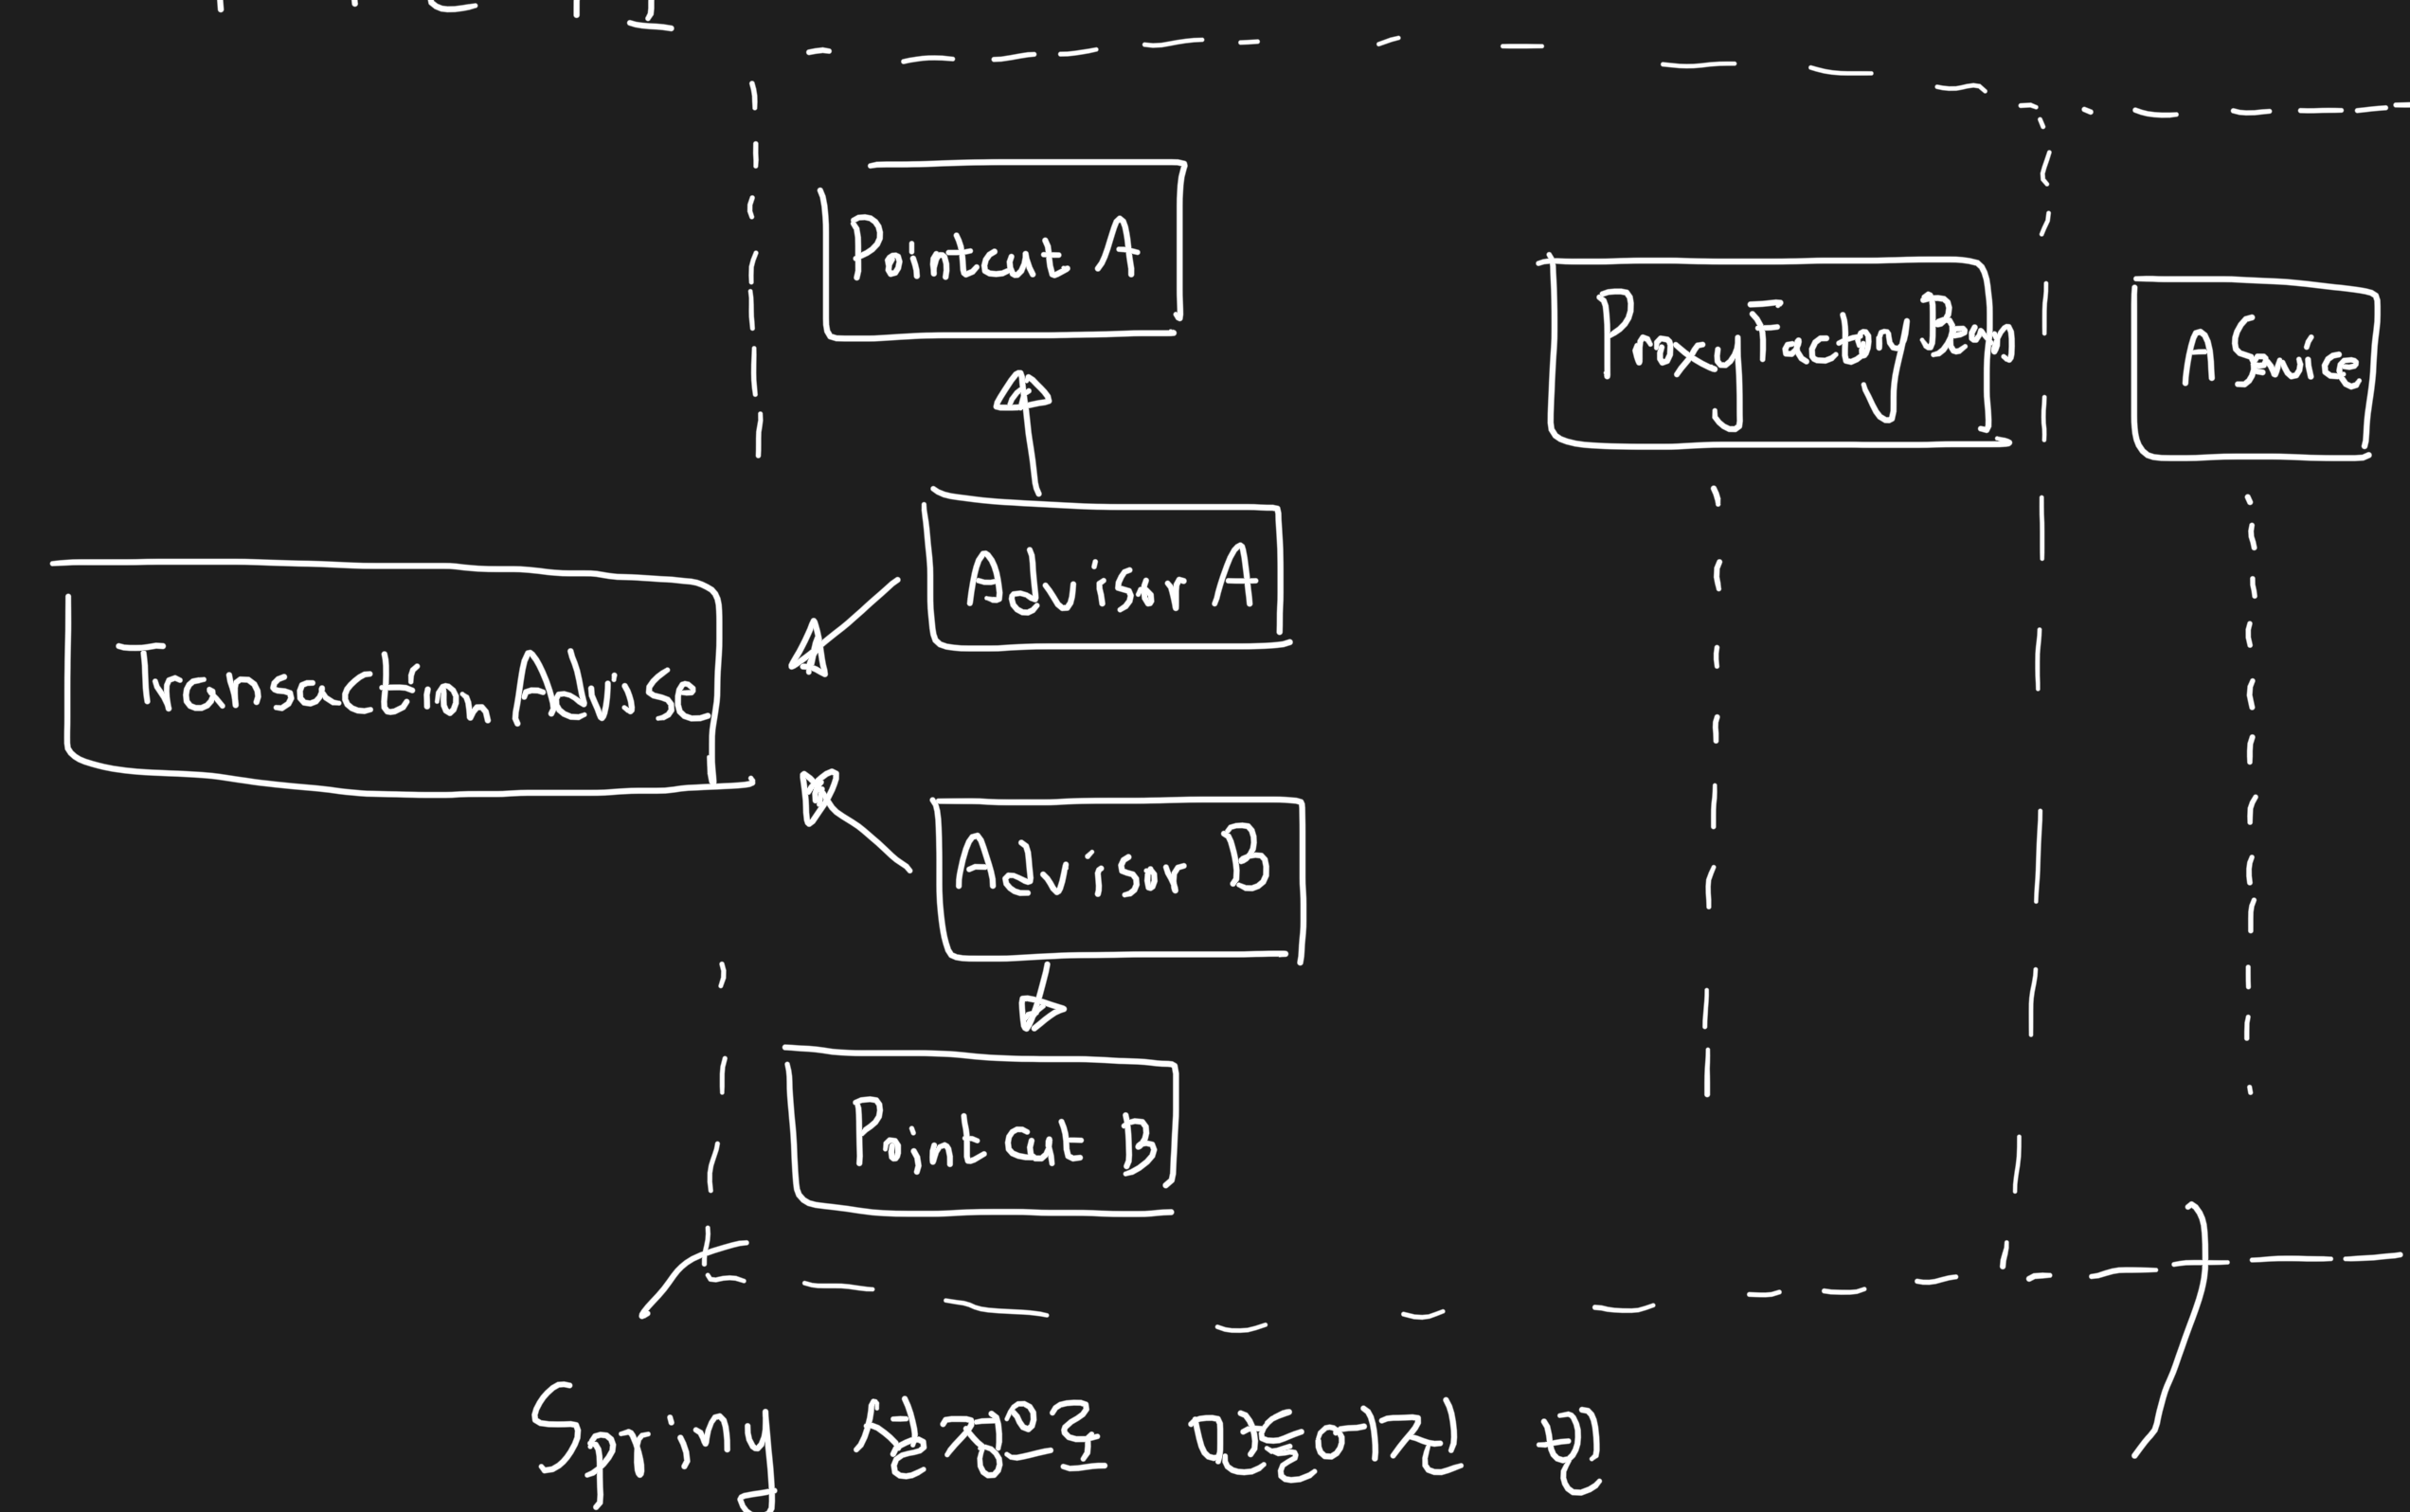 Pointcut A
ProxyFactoryBean
A Service
Advisor A
Transaction Advise
Advisor B
Pointcut B
Spring 설정으로 만들어진 빈